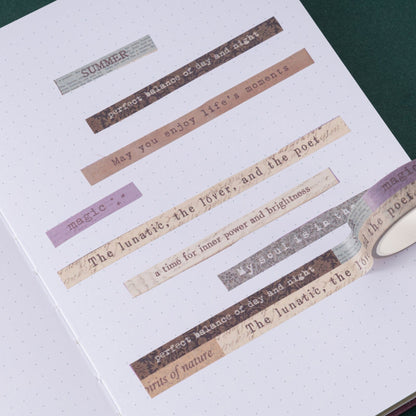 SUMMER
perfect balance of day and night
May you enjoy life's moments
magic
The lunatic, the lover, and the poet
a time for inner power and brightness
My soul is in the
magic
and the poet
perfect balance of day and night
The lunatic, the lo
irits of nature